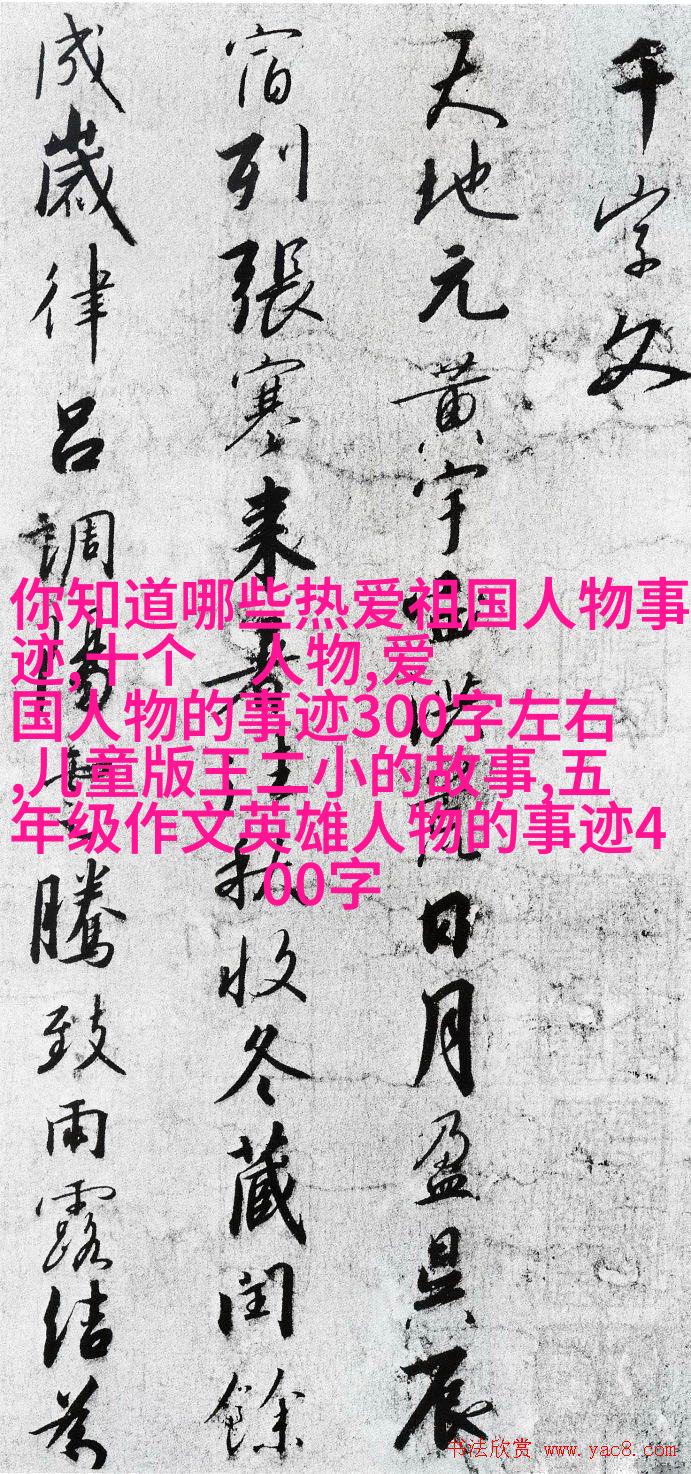 千字文
天地元黄宇宙洪荒日月盈昃辰
宿列張寒来暑往秋收冬蔵閏餘
成歲律呂調陽雲騰致雨露結為
你知道哪些热爱祖国人物事
迹,十个 人物,爱
国人物的事迹300字左右
,儿童版王二小的故事,五
年级作文英雄人物的事迹4
00字
书法欣赏 www.yac8.com